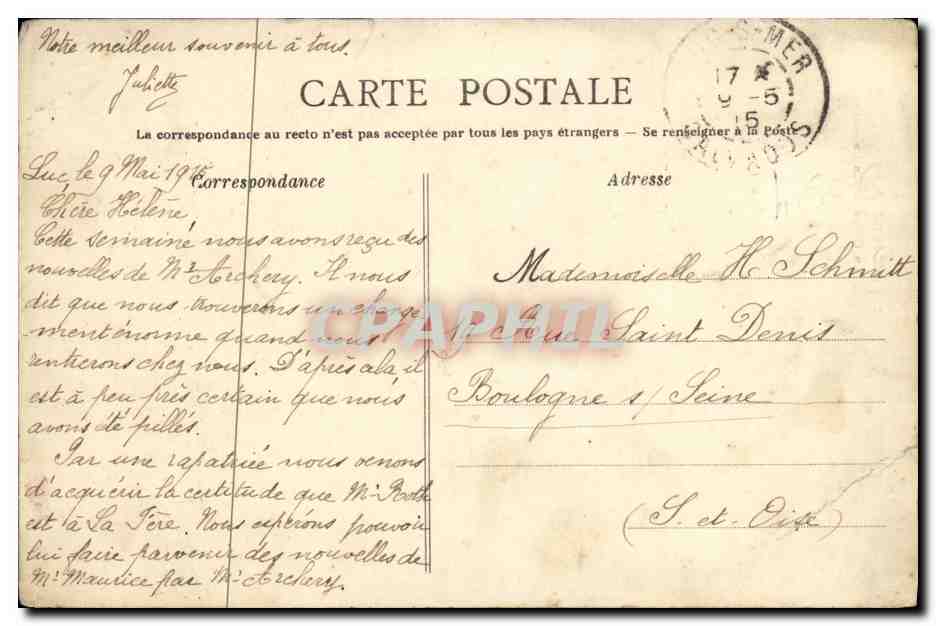 Notre meilleur souvenir à tous.
Juliette
CARTE POSTALE
La correspondance au recto n'est pas acceptée par tous les pays étrangers — Se renseigner à la Poste
Correspondance
Adresse
Luc, le 9 Mai 1915
Chère Hélène,
Cette semaine nous avons reçu des
nouvelles de Mr Archery. Il nous
dit que nous trouverons un change
ment énorme quand nous
rentrerons chez nous. D'après cela, il
est à peu près certain que nous
avons été pillés.
Par une rapatriée nous venons
d'acquérir la certitude que Mr Roth
est à La Fère. Nous espérons pouvoir
lui faire parvenir des nouvelles de
Mr Maurice par Mr Archery.
Mademoiselle H Schmitt
Rue Saint Denis
Boulogne s/ Seine
(S. et. Oise)
MER
17 *
9 - 5
15
CALVADOS
CPAPHIL